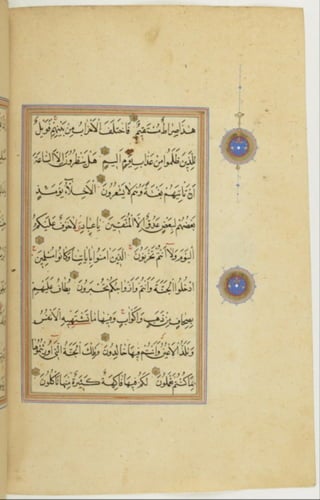 هذا صراط مستقيم فاختلف الاحزاب من بينهم فويل
للذين ظلموا من عذاب يوم اليم هل ينظرون الا الساعة
ان تاتيهم بغتة وهم لا يشعرون الاخلاء يومئذ
بعضهم لبعض عدو الا المتقين يا عباد لا خوف عليكم
اليوم ولا انتم تحزنون الذين امنوا باياتنا وكانوا مسلمين
ادخلوا الجنة انتم وازواجكم تحبرون يطاف عليهم
بصحاف من ذهب واكواب وفيها ما تشتهيه الانفس
وتلذ الاعين وانتم فيها خالدون وتلك الجنة التي اورثتموها
بما كنتم تعملون لكم فيها فاكهة كثيرة منها تاكلون